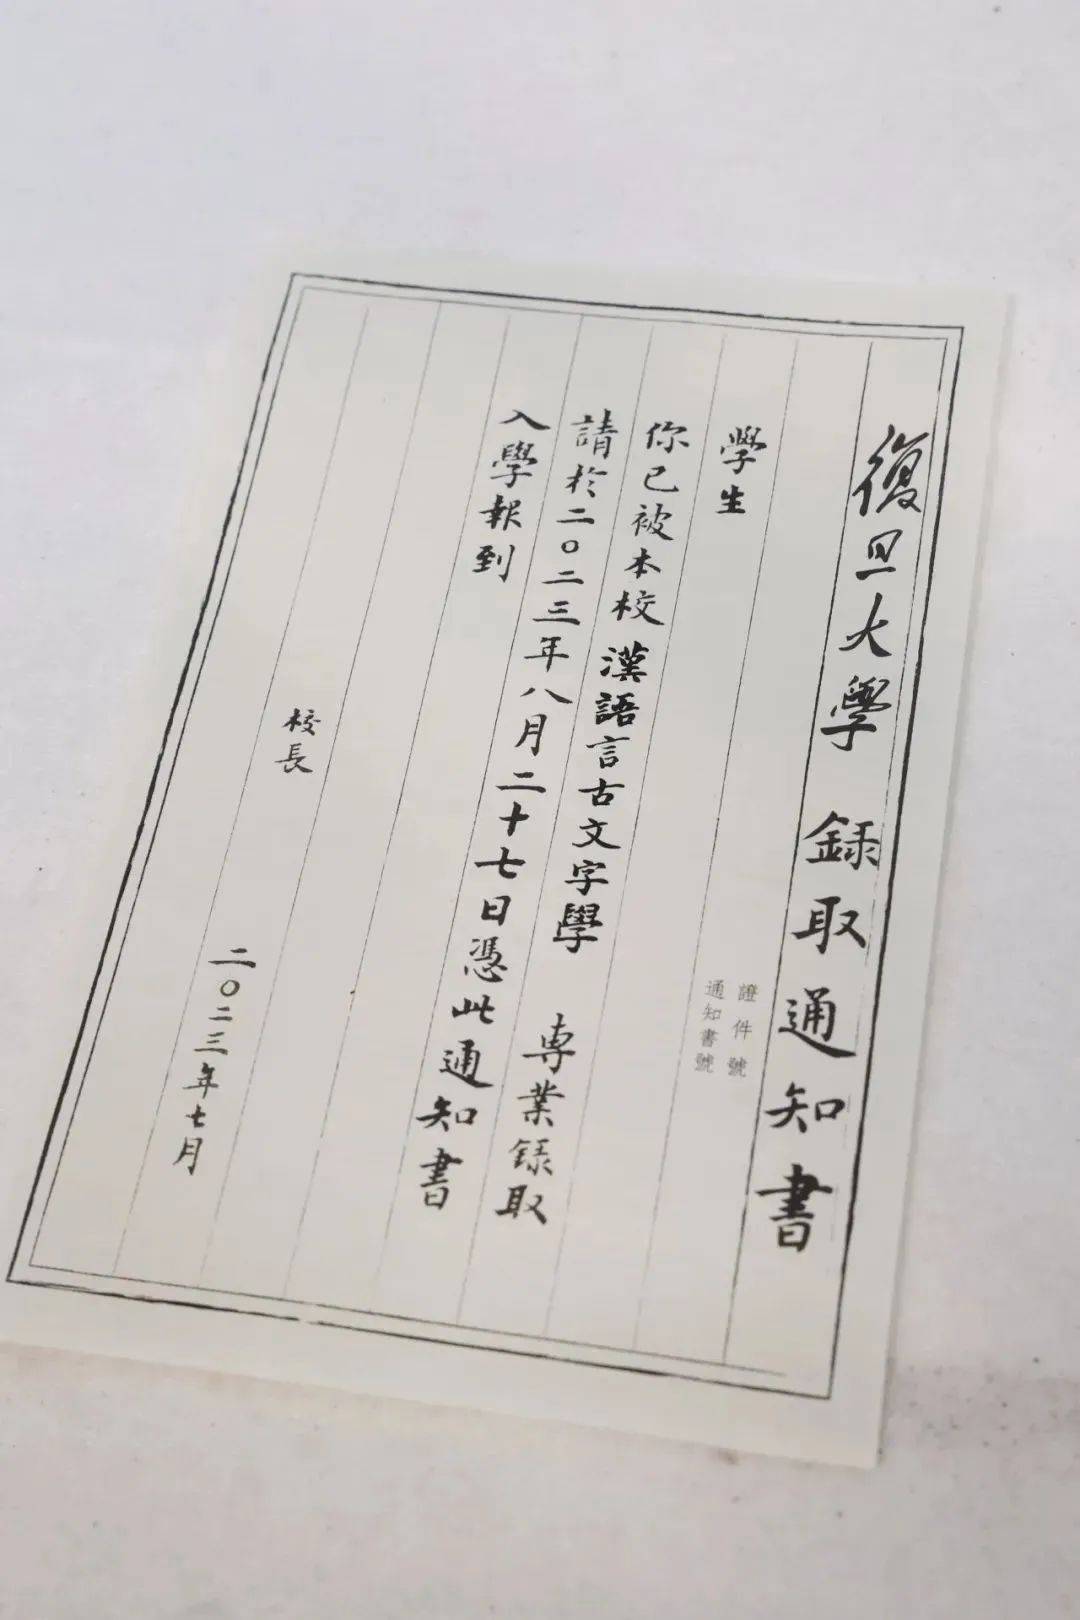 復旦大學 錄取通知書
證件號
通知書號
學生
你已被本校漢語言古文字學 專業錄取
請於二〇二三年八月二十七日憑此通知書
入學報到
校長
二〇二三年七月